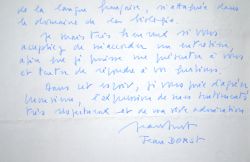 de la langue française, n'attaque dans
le domaine de la biologie.
Je serais très heureux si vous
acceptiez de m'accorder un entretien,
afin que je puisse me présenter à vous
et tenter de répondre à vos questions.
Dans cet espoir, je vous prie d'agréer
Monsieur, l'expression de mes sentiments
très respectueux et de ma vive admiration
Jean DORST